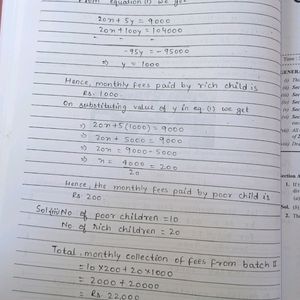 From equation (1) we get
20x + 5y = 9000
20x + 100y = 104000
-   -   -
-95y = -95000
⇒ y = 1000
Hence, monthly fees paid by rich child is
Rs. 1000.
On substituting value of y in eq. (1) we get
⇒ 20x + 5(1000) = 9000
⇒ 20x + 5000 = 9000
⇒ 20x = 9000 - 5000
⇒ x = 4000 = 200
20
Hence, the monthly fees paid by poor child is
Rs 200.
No of poor children = 10
No of rich children = 20
Total monthly collection of fees from batch II
= 10 × 200 + 20 × 1000
= 2000 + 20000
= Rs. 22,000
Time
GENERA
(i)
(ii)
ection A
1. If
Sol. (b)
2. The